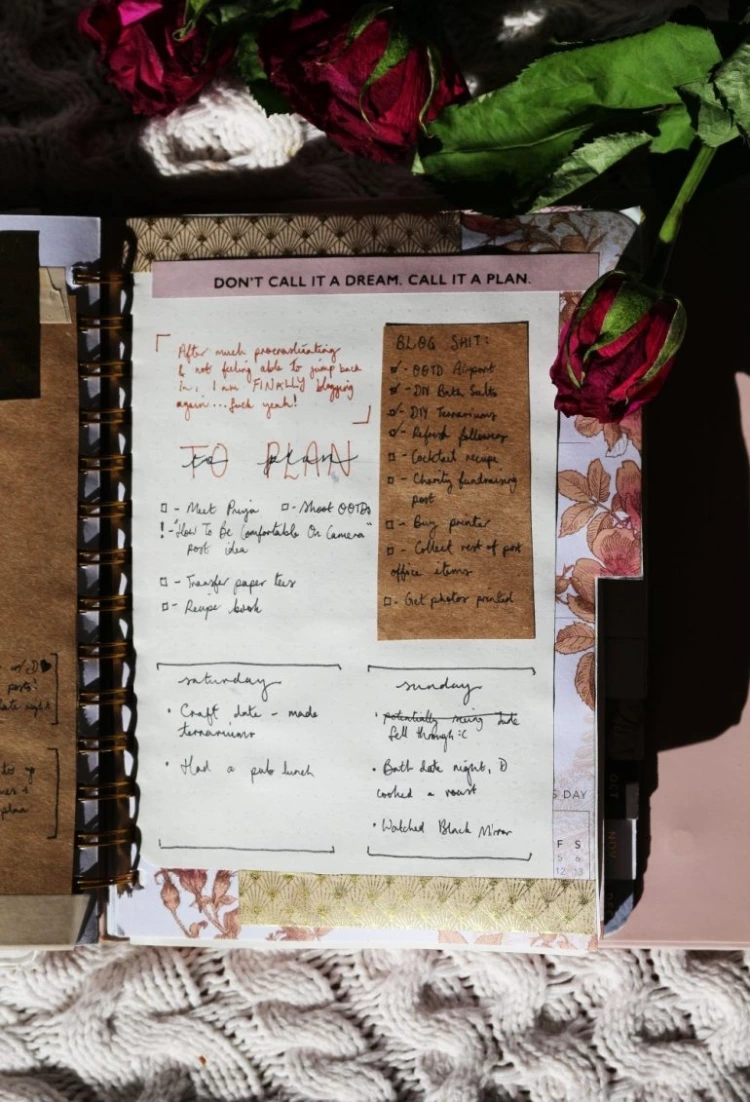 DON'T CALL IT A DREAM. CALL IT A PLAN.
After much procrastinating
& not feeling able to jump back
in, I am FINALLY blogging
again... fuck yeah!
TO PLAN
to plan
- Meet Priya - Shoot OOTDs
! - "How To Be Comfortable On Camera"
post idea
- Transfer paper tees
- Recipe book
BLOG SHIT:
- OOTD Airport
- DIY Bath Salts
- DIY Terrariums
- Refresh followers
- Cocktail recipe
- Charity fundraising
post
- Buy printer
- Collect rest of post
office items
- Get photos printed
saturday
• Craft date - made
terrariums
• Had a pub lunch
sunday
• potentially seeing
fell through :c
• Bath date night, D
cooked a roast
• Watched Black Mirror
posts!
late night
to up
plan
S DAY
F S
5 6
12 13
OCT
NOV